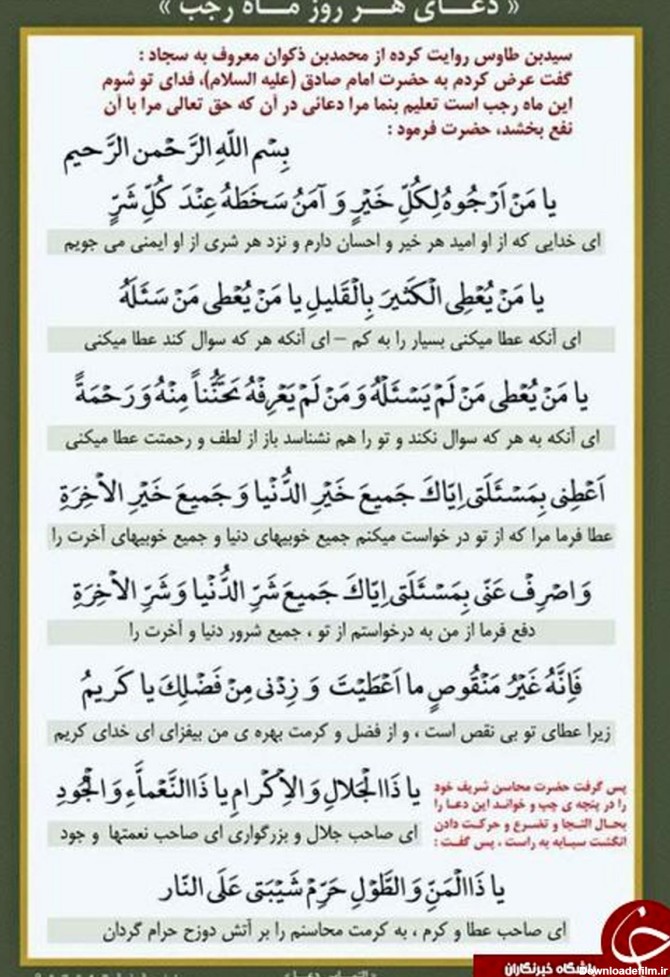 « دعـای هـر روز مـاه رجب »
سیدبن طاوس روایت کرده از محمدبن ذکوان معروف به سجاد :
گفت عرض کردم به حضرت امام صادق (علیه السلام)، فدای تو شوم
این ماه رجب است تعلیم بنما مرا دعائی در آن که حق تعالی مرا با آن
نفع بخشد، حضرت فرمود :
بِسْمِ اللّٰهِ الرَّحْمنِ الرَّحیمِ
یا مَنْ اَرْجُوهُ لِکُلِّ خَیْرٍ وَ آمَنُ سَخَطَهُ عِنْدَ کُلِّ شَرٍّ
ای خدایی که از او امید هر خیر و احسان دارم و نزد هر شری از او ایمنی می جویم
یا مَنْ یُعْطِی الْکَثیرَ بِالْقَلیلِ یا مَنْ یُعْطی مَنْ سَئَلَهُ
ای آنکه عطا میکنی بسیار را به کم – ای آنکه هر که سوال کند عطا میکنی
یا مَنْ یُعْطی مَنْ لَمْ یَسْئَلْهُ وَ مَنْ لَمْ یَعْرِفْهُ تَحَنُّناً مِنْهُ وَ رَحْمَةً
ای آنکه به هر که سوال نکند و تو را هم نشناسد باز از لطف و رحمتت عطا میکنی
اَعْطِنی بِمَسْئَلَتی اِیّاکَ جَمیعَ خَیْرِ الدُّنْیا وَ جَمیعَ خَیْرِ الْاخِرَةِ
عطا فرما مرا که از تو در خواست میکنم جمیع خوبیهای دنیا و جمیع خوبیهای آخرت را
وَ اصْرِفْ عَنّی بِمَسْئَلَتی اِیّاکَ جَمیعَ شَرِّ الدُّنْیا وَ شَرِّ الْاخِرَةِ
دفع فرما از من به درخواستم از تو ، جمیع شرور دنیا و آخرت را
فَاِنَّهُ غَیْرُ مَنْقُوصٍ ما اَعْطَیْتَ وَ زِدْنی مِنْ فَضْلِکَ یا کَریمُ
زیرا عطای تو بی نقص است ، و از فضل و کرمت بهره ی من بیفزای ای خدای کریم
پس گرفت حضرت محاسن شریف خود
را در پنجه ی چپ و خواند این دعا را
بحال التجا و تضرع و حرکت دادن
انگشت سبابه به راست ، پس گفت :
یا ذَا الْجَلالِ وَ الْاِکْرامِ یا ذَا النَّعْمآءِ وَ الْجُودِ
ای صاحب جلال و بزرگواری ای صاحب نعمتها و جود
یا ذَا الْمَنِّ وَ الطَّوْلِ حَرِّمْ شَیْبَتی عَلَی النّارِ
ای صاحب عطا و کرم ، به کرمت محاسنم را بر آتش دوزخ حرام گردان
باشگاه خبرنگاران
Downloadefilm.ir